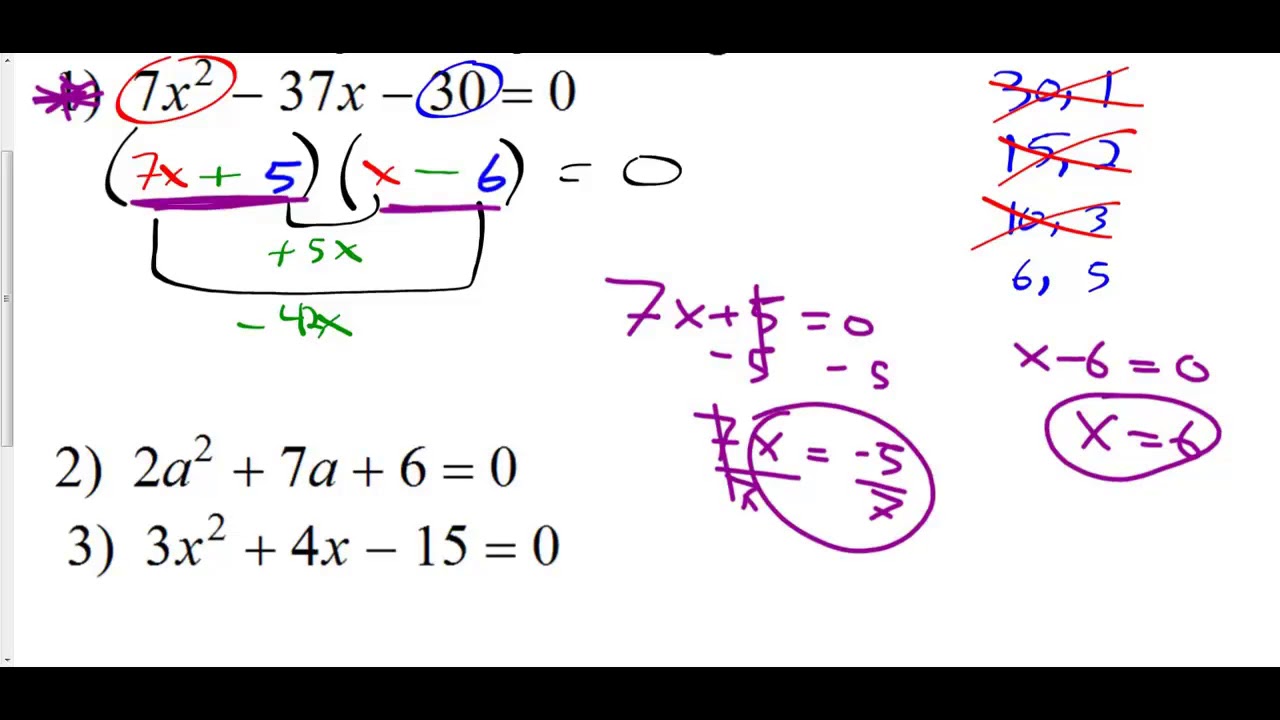 1) 7x² − 37x − 30 = 0
(7x + 5)(x − 6) = 0
+5x
−42x
30, 1
15, 2
10, 3
6, 5
7x + 5 = 0
−5 −5
7x = −5
7 7
x − 6 = 0
x = 6
2) 2a² + 7a + 6 = 0
3) 3x² + 4x − 15 = 0